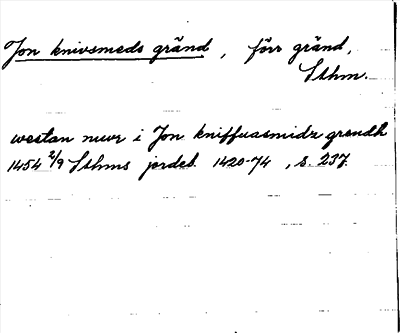 Jon knivsmeds gränd, förr gränd,
Sthm.
westan mur i Jon kniffuasmidz grendh
1454 2/9 Sthms jordeb. 1420-74, s. 237.